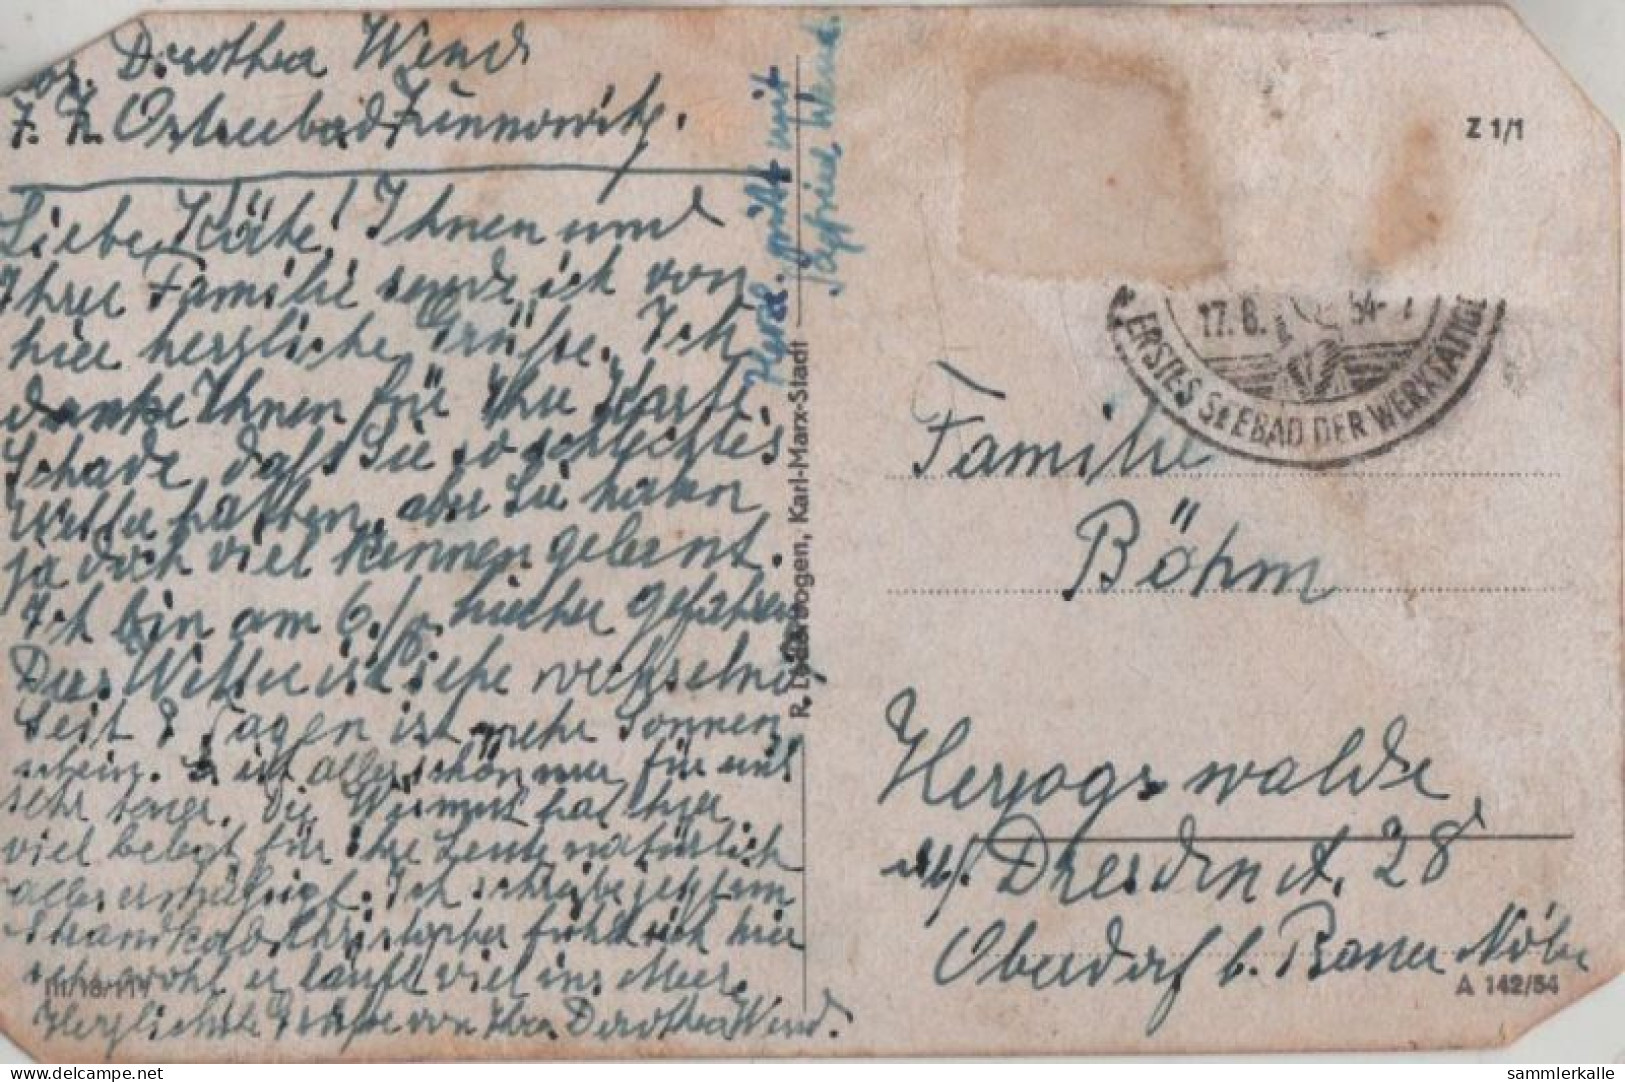 Dorothea Wend
z. Z. Ostseebad Zinnowitz.
Liebe Käthe! Ihnen und
Ihrer Familie sende ich von
hier herzliche Grüße. Ich
danke Ihnen für Ihre Karte.
Schade, daß Sie so schlechtes
Wetter hatten, aber Sie haben
ja doch viel kennen gelernt.
Ich bin am 6./8. hierher gefahren
Das Wetter ist sehr wechselnd
Seit 8 Tagen ist mehr Sonnen
schein. Es ist alles schön nur für uns
sehr teuer. Die Wismut hat hier
viel belegt für ihre Leute natürlich
alles ermäßigt. Ich schreibe jetzt im
Strandkorb. Christopher fühlt sich hier
sehr wohl er läuft viel ins Meer.
Herzlichste Grüße von Ihrer Dorothea Wend.
Herzl. grüßt mit
Siegfried Wend.
R. Lederbogen, Karl-Marx-Stadt
III/18/111
Z 1/1
17.8. 54-7
ERSTES SEEBAD DER WERKTÄTIGEN
Familie
Böhm
Herzogswalde
üb/. Dresden A. 28
Oberdorf b. Bauer
A 142/54
sammlerkalle
www.delcampe.net